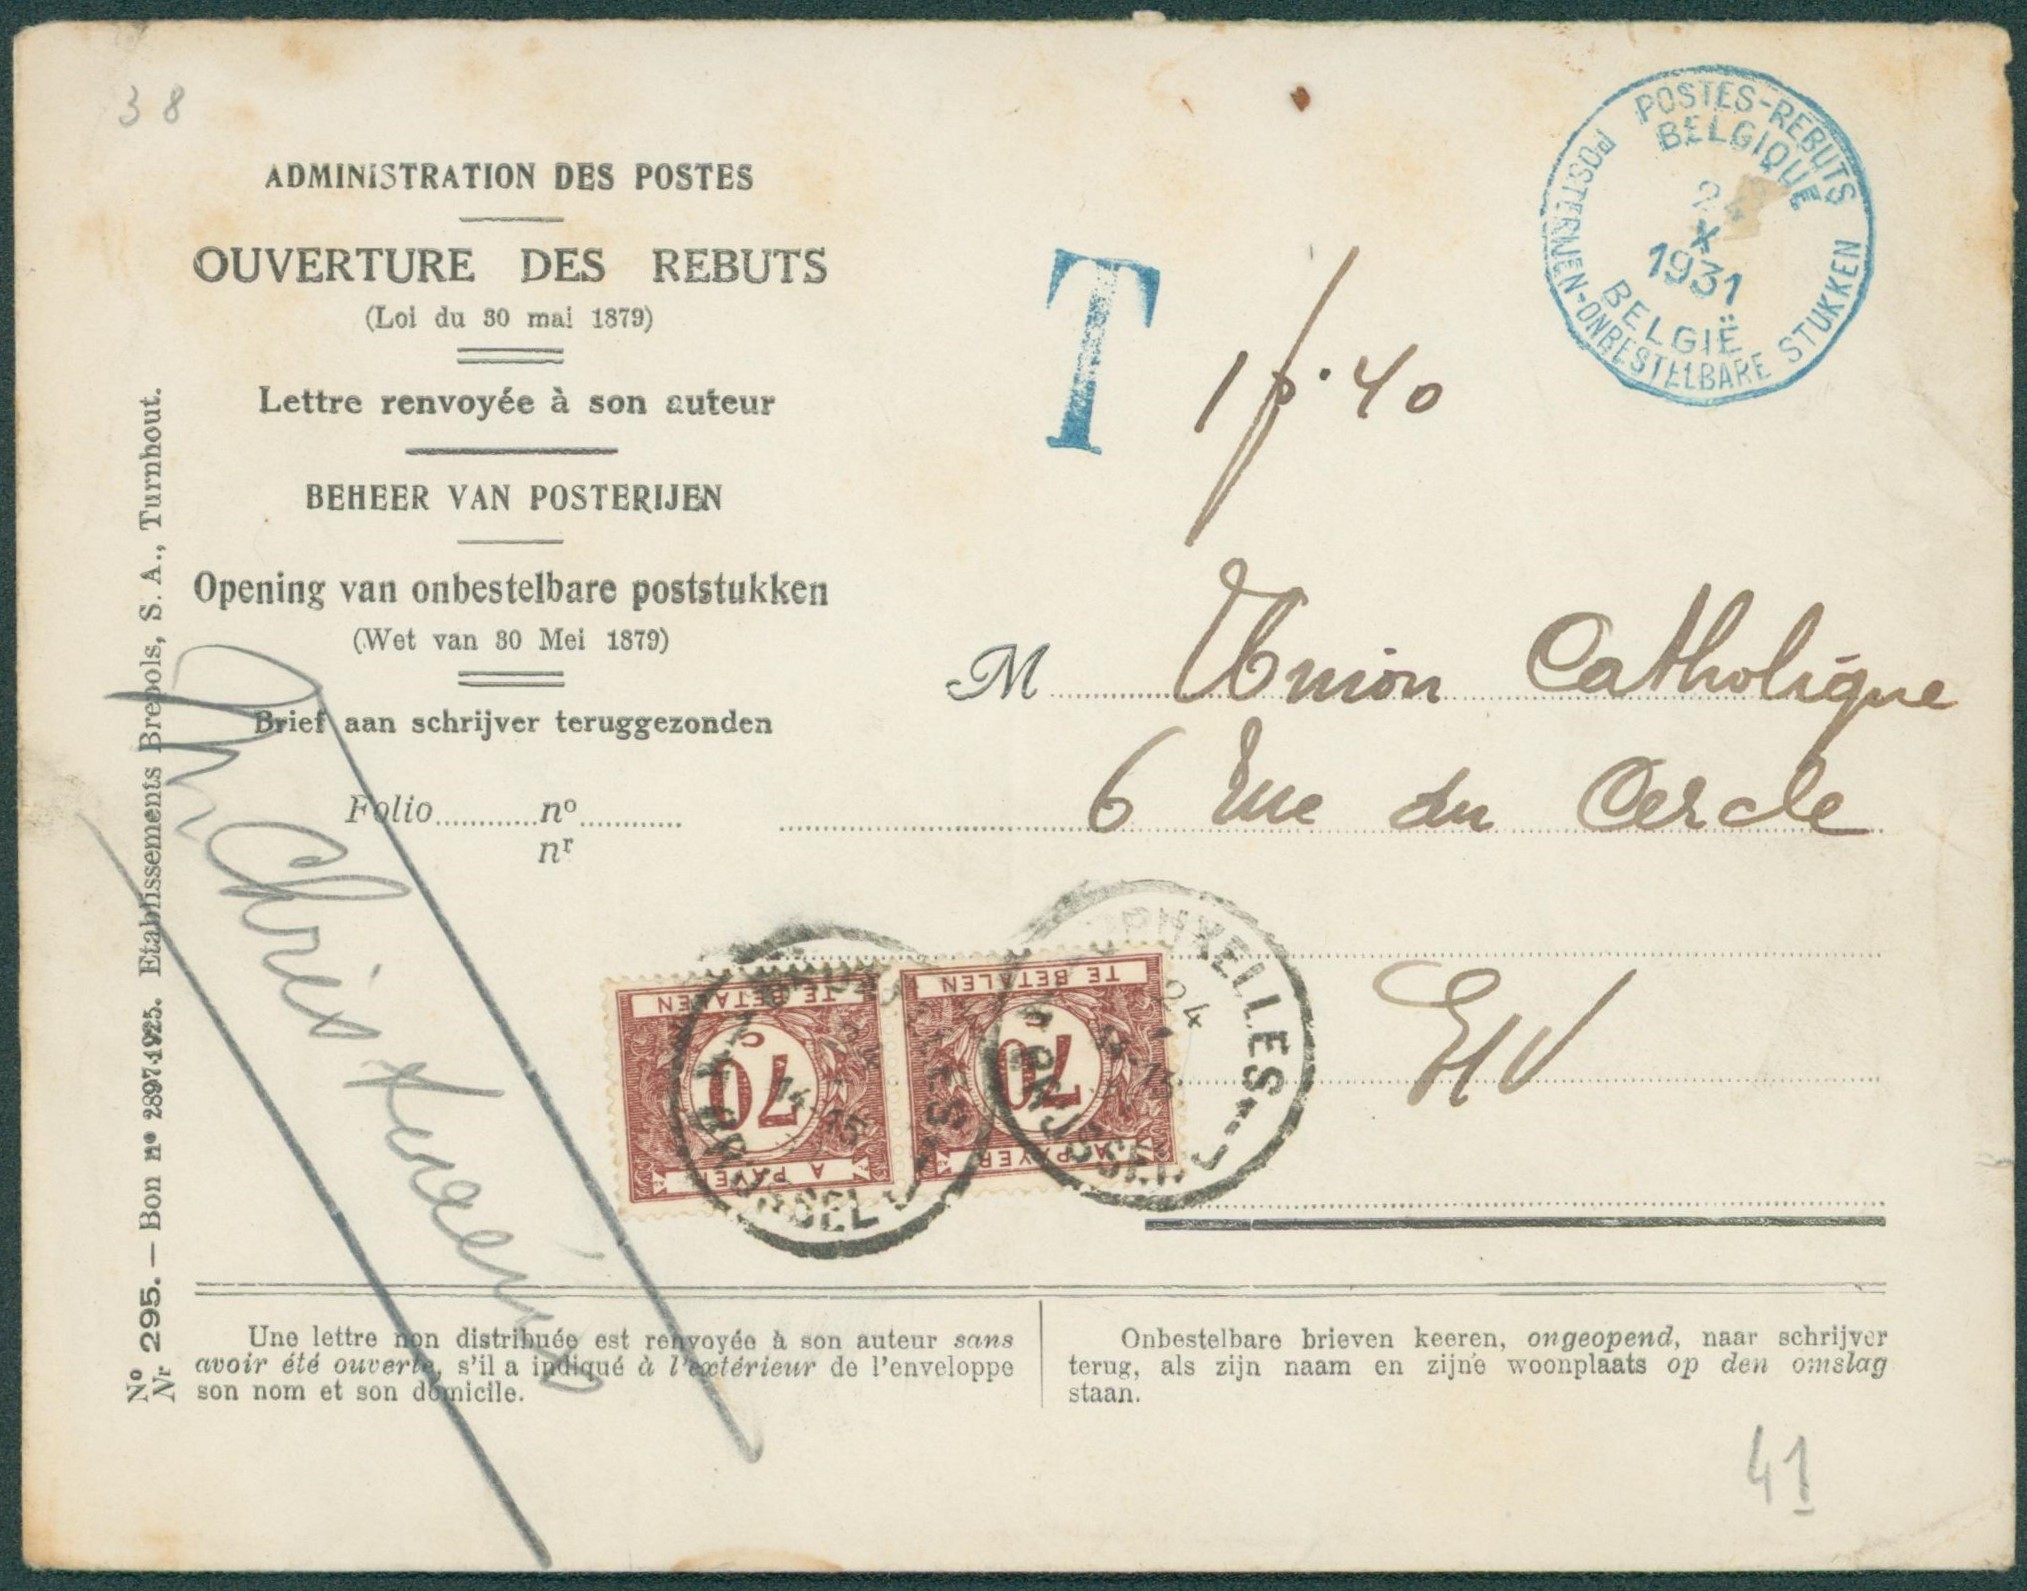 38
ADMINISTRATION DES POSTES
OUVERTURE DES REBUTS
(Loi du 30 mai 1879)
Lettre renvoyée à son auteur
BEHEER VAN POSTERIJEN
Opening van onbestelbare poststukken
(Wet van 30 Mei 1879)
Brief aan schrijver teruggezonden
Folio............nº............
nr
POSTES-REBUTS
BELGIQUE
X
1931
BELGIË
POSTERIJEN-ONBESTELBARE STUKKEN
T 1f.40
M Union Catholique
6 Rue du Cercle
EV
TE BETALEN
70
A PAYER
TE BETALEN
70
A PAYER
BRUXELLES
24
Une lettre non distribuée est renvoyée à son auteur sans
avoir été ouverte, s'il a indiqué à l'extérieur de l'enveloppe
son nom et son domicile.
Onbestelbare brieven keeren, ongeopend, naar schrijver
terug, als zijn naam en zijne woonplaats op den omslag
staan.
Nº Nr 295. — Bon nº 2897-1925. Etablissements Brepols, S. A., Turnhout.
41